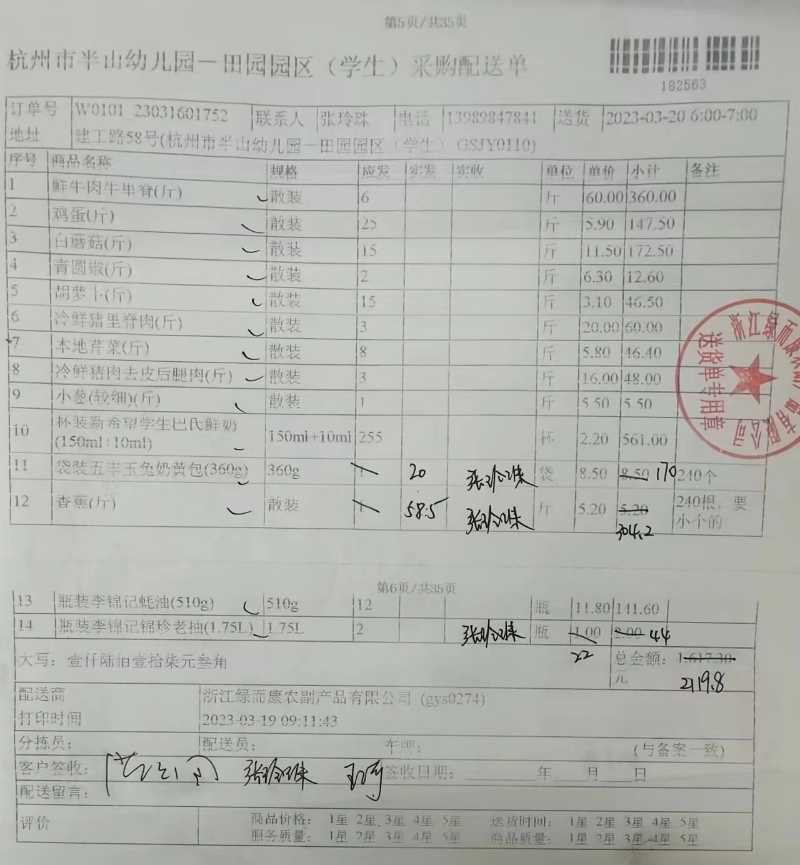 第5页/共35页
杭州市半山幼儿园一田园园区（学生）采购配送单
182563
订单号 W0101_23031601752 联系人 张玲珠 电话 13989847841 送货 2023-03-20 6:00-7:00
地址 建工路58号(杭州市半山幼儿园一田园园区（学生） GSJY0110)
序号 商品名称 规格 应发 实发 实收 单位 单价 小计 备注
1 鲜牛肉牛里脊(斤) 散装 6 斤 60.00 360.00
2 鸡蛋(斤) 散装 25 斤 5.90 147.50
3 白蘑菇(斤) 散装 15 斤 11.50 172.50
4 青圆椒(斤) 散装 2 斤 6.30 12.60
5 胡萝卜(斤) 散装 15 斤 3.10 46.50
6 冷鲜猪里脊肉(斤) 散装 3 斤 20.00 60.00
7 本地芹菜(斤) 散装 8 斤 5.80 46.40
8 冷鲜猪肉去皮后腿肉(斤) 散装 3 斤 16.00 48.00
9 小葱(较细)(斤) 散装 1 斤 5.50 5.50
10 杯装新希望学生巴氏鲜奶(150ml+10ml) 150ml+10ml 255 杯 2.20 561.00
11 袋装五丰玉兔奶黄包(360g) 360g 1 20 张玲珠 袋 8.50 8.50 170 240个
12 香蕉(斤) 散装 1 58.5 张玲珠 斤 5.20 5.20 304.2 240根，要小个的
浙江绿而康农副产品有限公司
送货单专用章
第6页/共35页
13 瓶装李锦记蚝油(510g) 510g 12 瓶 11.80 141.60
14 瓶装李锦记锦珍老抽(1.75L) 1.75L 2 张玲珠 瓶 1.00 22 2.00 44
大写：壹仟陆佰壹拾柒元叁角 总金额：1617.30元 2119.8
配送商 浙江绿而康农副产品有限公司 (gys0274)
打印时间 2023-03-19 09:11:43
分拣员： 配送员： 车牌： (与备案一致)
客户签收： 张玲珠 签收日期： 年 月 日
配送留言：
评价 商品价格： 1星 2星 3星 4星 5星 送货时间： 1星 2星 3星 4星 5星
服务质量： 1星 2星 3星 4星 5星 商品质量： 1星 2星 3星 4星 5星